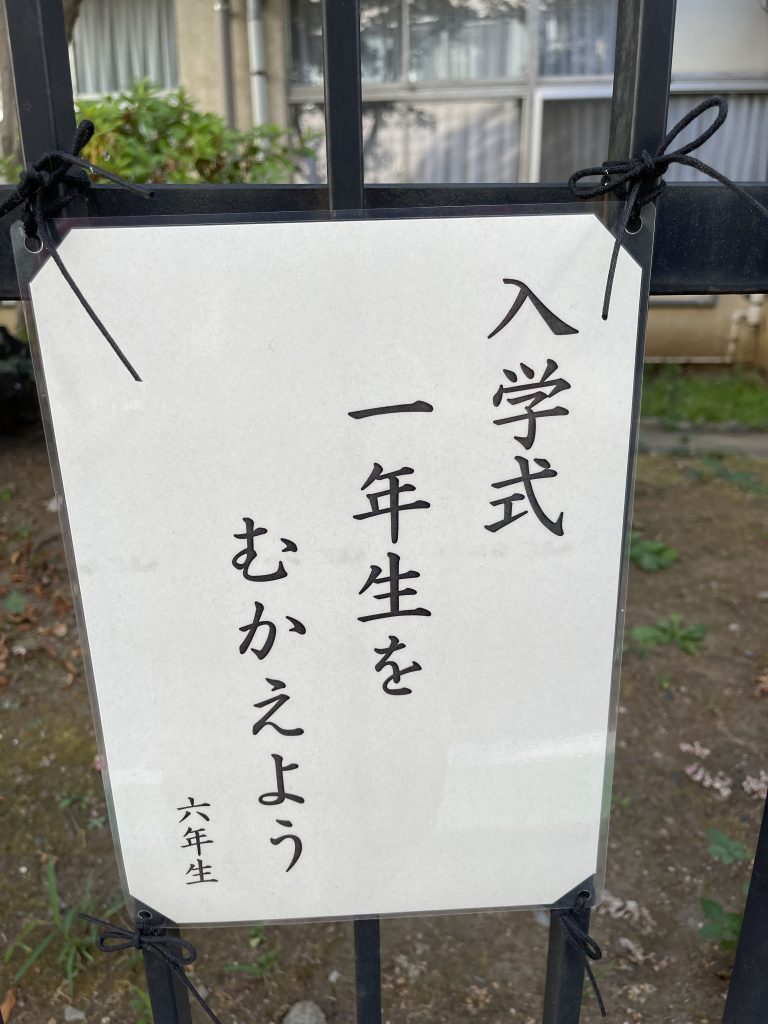 入学式
一年生を
むかえよう
六年生